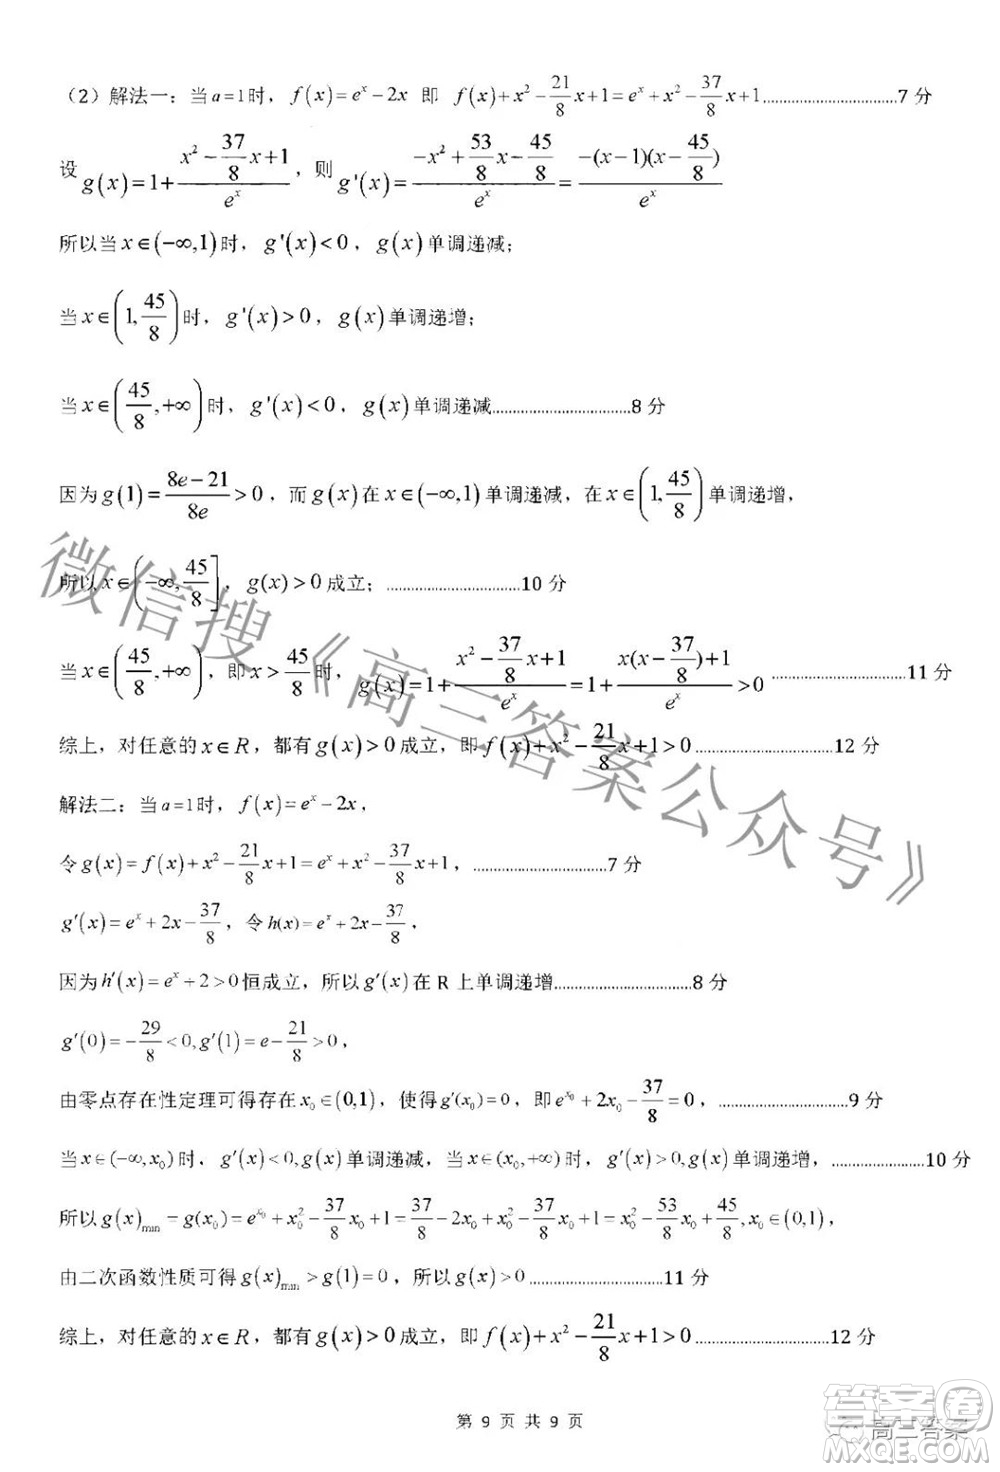 （2）解法一：当 a=1时，f(x)=e^x-2x 即 f(x)+x^2-\frac{21}{8}x+1=e^x+x^2-\frac{37}{8}x+1..................................7 分
设 g(x)=1+\frac{x^2-\frac{37}{8}x+1}{e^x}，则 g'(x)=\frac{-x^2+\frac{53}{8}x-\frac{45}{8}}{e^x}=\frac{-(x-1)(x-\frac{45}{8})}{e^x}
所以当 x∈(-∞,1)时，g'(x)<0，g(x)单调递减；
当 x∈(1,\frac{45}{8})时，g'(x)>0，g(x)单调递增；
当 x∈(\frac{45}{8},+∞)时，g'(x)<0，g(x)单调递减..................................8 分
因为 g(1)=\frac{8e-21}{8e}>0，而 g(x)在 x∈(-∞,1)单调递减，在 x∈(1,\frac{45}{8})单调递增，
所以 x∈(-∞,\frac{45}{8}]，g(x)>0成立；..................................10 分
当 x∈(\frac{45}{8},+∞)，即 x>\frac{45}{8}时，g(x)=1+\frac{x^2-\frac{37}{8}x+1}{e^x}=1+\frac{x(x-\frac{37}{8})+1}{e^x}>0..................................11 分
综上，对任意的 x∈R，都有 g(x)>0成立，即 f(x)+x^2-\frac{21}{8}x+1>0..................................12 分
解法二：当 a=1时，f(x)=e^x-2x，
令 g(x)=f(x)+x^2-\frac{21}{8}x+1=e^x+x^2-\frac{37}{8}x+1，..................................7 分
g'(x)=e^x+2x-\frac{37}{8}，令 h(x)=e^x+2x-\frac{37}{8}，
因为 h'(x)=e^x+2>0恒成立，所以 g'(x)在 R 上单调递增..................................8 分
g'(0)=-\frac{29}{8}<0,g'(1)=e-\frac{21}{8}>0，
由零点存在性定理可得存在 x_0∈(0,1)，使得 g'(x_0)=0，即 e^{x_0}+2x_0-\frac{37}{8}=0，..................................9 分
当 x∈(-∞,x_0)时，g'(x)<0,g(x)单调递减，当 x∈(x_0,+∞)时，g'(x)>0,g(x)单调递增，........................10 分
所以 g(x)_{min}=g(x_0)=e^{x_0}+x_0^2-\frac{37}{8}x_0+1=\frac{37}{8}-2x_0+x_0^2-\frac{37}{8}x_0+1=x_0^2-\frac{53}{8}x_0+\frac{45}{8},x_0∈(0,1)，
由二次函数性质可得 g(x)_{min}>g(1)=0，所以 g(x)>0..................................11 分
综上，对任意的 x∈R，都有 g(x)>0成立，即 f(x)+x^2-\frac{21}{8}x+1>0..................................12 分
第 9 页 共 9 页
微信搜《高三答案公众号》
答案圈
高三答案
MXQE.COM